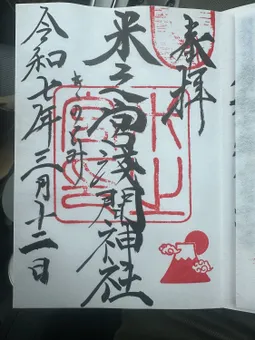 奉拝
米之宮浅間神社
令和七年三月十二日